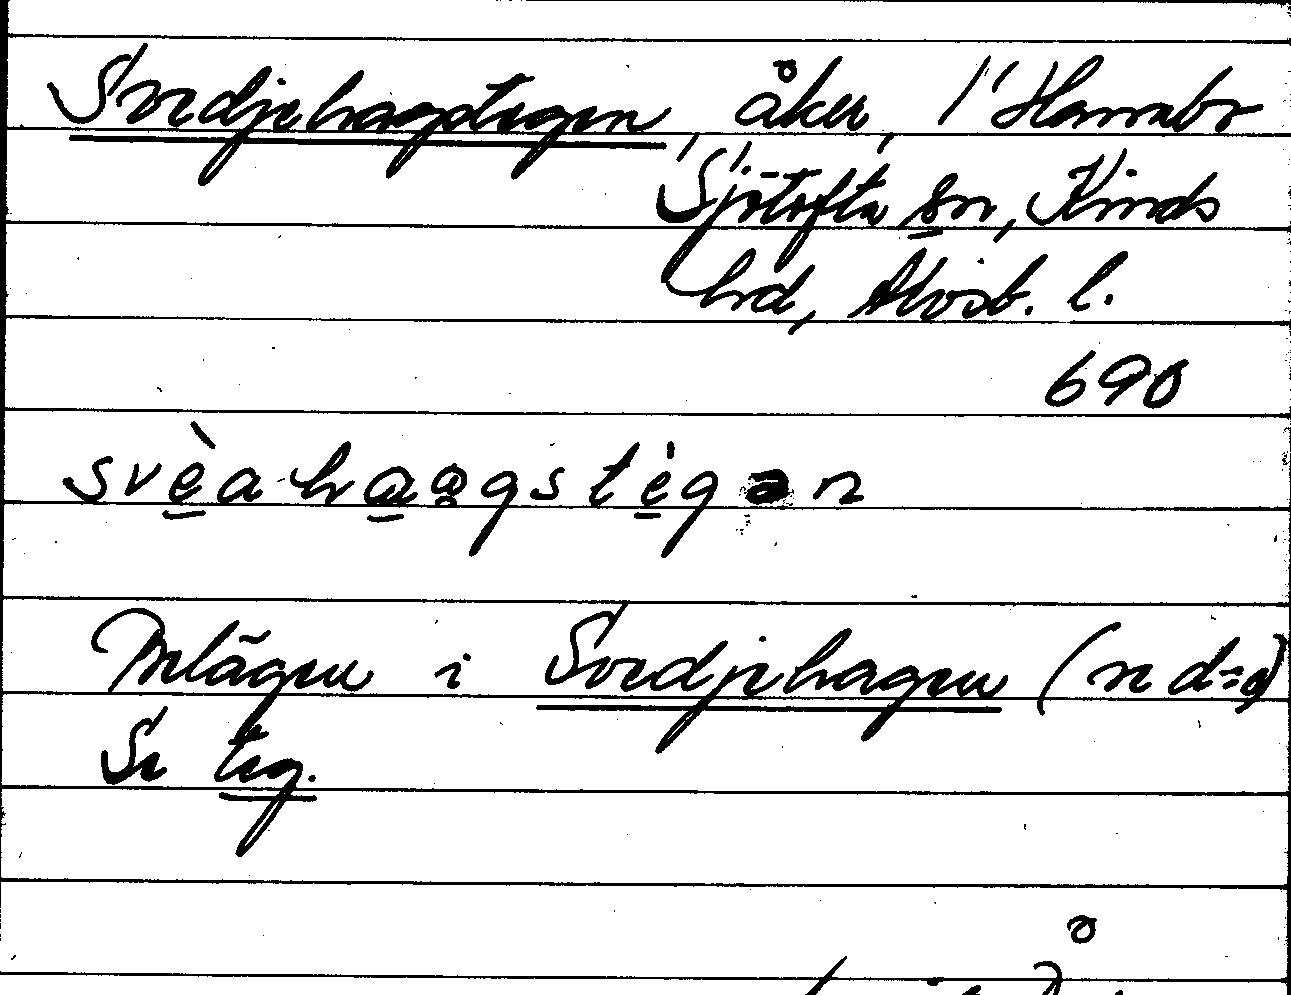 Svedjehagstegen, åker, 1 Hamrabo
Sjötofta sn, Kinds
hrd, Älvsb. l.
690
svèahaagstegən
Belägen i Svedjehagen (nedan)
Se teg.